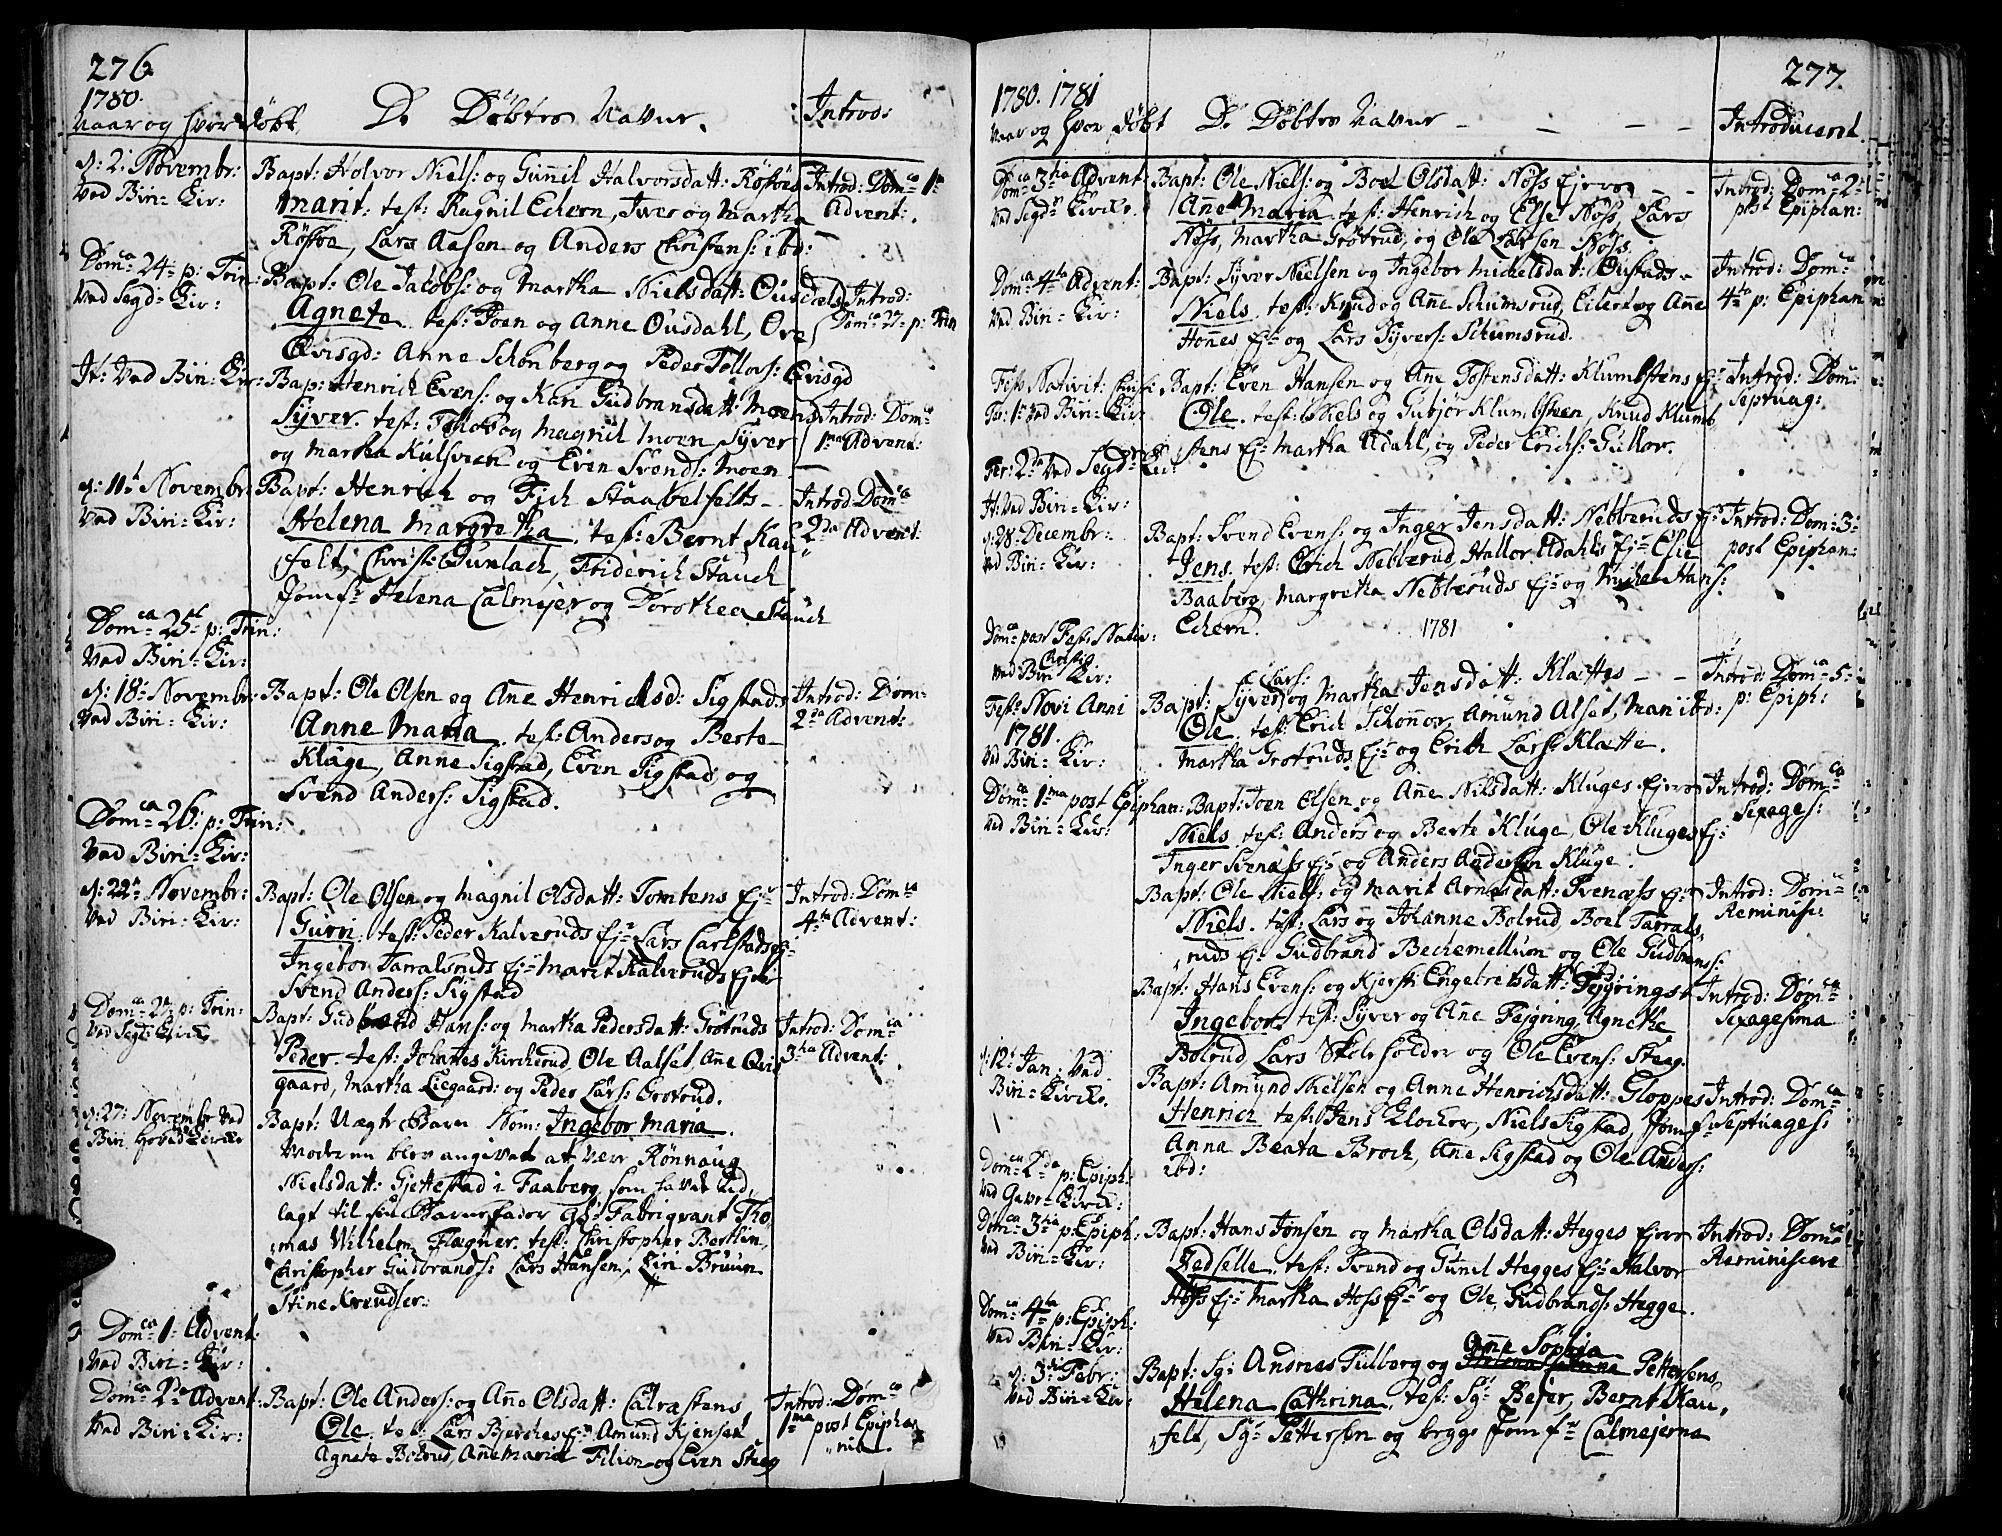 276.
1780.
Naar og hvor døbt.
De Døbtes Navne.
Introd:
d: 2: Novembr:
Ved Biri- Kir:
Bapt: Holvor Niels: og Gunnil Halvorsdatt: Røstøes
Marit: test: Ragnil Echern, Iver og Martha
Røstøe, Lars Aasen og Anders Christens: ibd:
Introd: Domca 1ma
Advent:
Domca 24- p: Trin:
Ved Segd- Kir:
Bapt: Ole Jacobs: og Martha Nielsdatt: Ousdels
Agnete test: Joen og Anne Ousdahl, Ove
Qvisgd: Anne Schonberg og Peder Tollors: Qvisgd
Introd:
Domca 27- p: Trin
It: Ved Biri- Kir:
Bap: Henrich Evens: og Kari Gudbransdatt: Moens
Syver. test: Tollov og Magnil Moen Syver
og Martha Kulsveen og Even Svends: Moen
Introd: Domca
1ma Advent:
d: 11t Novembr:
Ved Biri- Kir:
Bapt: Henrich og Fich Staabelfelts-
Helena Margretha. test: Bernt Kau
felt, Christ: Gunlach, Friderich Stauch
Jomfr Helena Calmejer og Dorothea Stauch
Introd: Domca
2da Advent:
Domca 25t p: Trin:
Ved Biri- Kir:
d: 18- Novembr:
Ved Biri- Kir:
Bapt: Ole Olsen og Ane Henrichsd: Sigstads
Anne Maria. test: Anders og Berte
Kluge, Anne Sigstad, Even Sigstad og
Svend Anders: Sigstad.
Introd: Dom-
2da Advent:
Domca 26: p: Trin:
Ved Biri- Kir:
d: 22t Novembr:
Ved Biri- Kir:
Bapt: Ole Olsen og Magnil Olsdatt: Tomtens Ej-
Guri. test: Peder Kalveruds Ej- Lars Carlstads Ej-
Ingebor Tarralsruds Ej- Marit Kalveruds Ej-
Svend Anders: Sigstad
Introd: Domca
4ta Advent:
Domca 27 p: Trin:
Ved Segd: Kircke
Bapt: Gudbrand Hans: og Martha Pedersdatt: Grøtruds
Peder. test: Johannes Kircherud, Ole Aalset, Ane Qvis
gaard, Martha Liegaard: og Peder Lars: Grotrud.
Introd: Domca
3tia Advent:
d: 27: Novembr Ved
Biri Hoved Kircke
Bapt: Uægte Barn Nom: Ingebor Maria.
Moderen blev angivet at være Rønnaug
Nielsdatt: Gjettestad i Faaberg, som havde ud
lagt til sin Barnefader Gs: Fabriqvant Tho,
mas Wilhelm Flægner. test: Christopher Berthin,
Christopher Gudbrands: Lars Hansen, Siri Bruun
Stine Knudser:
Domca 1- Advent:
Ved Biri- Kir:
Domca 2da Advent:
Ved Biri- Kir:
Bapt: Ole Anders: og Ane Olsdatt: Calrastens
Ole. test: Lars Bjerches Ej- Amund Kjenset
Agneta Bolrud, Ane Marie Filion og Even Steeg
Introd: Domca
1ma post Epipha
nia.
277.
1780. 1781
Naar og hvor døbt
De Døbtes Navne
Introduceret.
Domca 3tia Advent
Ved Segd Kircke.
Bapt: Ole Niels: og Boel Olsdatt: Nøss Ejere
Ane Maria test: Henrich og Else Nøss, Lars
Nøss, Martha Grøtrud, og Ole Larsen Nøss.
Introd: Domca 2-
post Epiphan:
Domca 4ta Advent:
Ved Biri- Kir:
Bapt: Syver Nielsen og Ingebor Michelsdat: Oustads-
Niels. test: Knud og Ane Schumsrud, Eilert og Ane
Hønes Ej- og Lars Syvers: Schumsrud.
Introd: Domca
4ta p: Epiphan
Fest: Nativit: Christi
Fer: 1- Ved Biri- Kir:
Bapt: Even Hansen og Ane Tostensdatt: Klumbstens Ej-
Ole. test: Niels og Gubjor Klumbsteen, Knud Klumb
stens Ej- Martha Udahl, og Peder Erichs: Gullor.
Introd: Dom-
Septuag:
Fer: 2da Ved Segd- Kir:
It: Ved Biri- Kir:
d: 28- Decembr:
Ved Biri- Kir:
Bapt: Svend Evens: og Inger Jensdatt: Nebberuds Ej-
Jens. test: Erich Nebberud, Hallor Udahls Ej- Elie
Baaberg, Margretha Nebberuds Ej- og Michel Hans:
Echern.
Introd: Dom- 3-
post Epiphan:
1781
Domca post Fest: Nativ:
Christi
Ved Biri Kir:
Fest: Novi Anni
1781.
Ved Biri- Kir:
Bapt: Syver Lars: og Martha Jensdatt: Klættes
Ole. test: Erich Schonnor, Amund Alset, Mari ibd:
Martha Grotruds Ej- og Erich Lars: Klætte.
Introd: Domca 5-
p: Epiph:
Domca 1ma post Epiphan:
Ved Biri- Kir:
Bapt: Joen Olsen og Ane Nilsdatt: Kluges Ejere
Niels. test: Anders og Berte Kluge, Ole Kluges Ej-
Inger Svenæss Ej- og Anders Andersen Kluge.
Introd: Domca
Sexages:
Bapt: Ole Niels: og Marit Arnesdatt: Svenæss Ej-
Niels. test: Lars og Johanne Bolrud, Boel Tarrals,
ruds Ej- Gudbrand Bechemellum og Ole Gudbrans:
Introd: Domca
Reminisc:
Bapt: Hans Evens: og Kjersti Engebretsdatt: Fejgrings
Ingebor. test: Syver og Ane Fejgring, Agnethe
Bolrud, Lars Skolesolder og Ole Evens: Steeg.
Introd: Domca
Sexagesima
d: 12t Jan: Ved
Biri- Kircke.
Bapt: Amund Nielsen og Anne Henrichsdatt: Gloppes
Henrich test: Jens Klocker, Niels Sigstad, Jomfr
Anna Beata Broch, Ane Sigstad og Ole Anders:
ibd:
Introd: Domca
Septuages:
Domca 2da p: Epiph:
Ved Gavr- Kirck:
Domca 3tia p: Epiph.
Ved Biri- Kir:
Bapt: Hans Jonsen og Martha Olsdatt: Hegges Ejere
Hedselle. test: Svend og Gunil Hegges Ej- Halvor
Høss Ej- Martha Hoss Ej- og Ole Gudbrands: Hegge.
Introd: Domca
Reminiscere
Domca 4ta p: Epiph:
Ved Biri- Kir:
d: 3di Febr:
Ved Biri- Kir:
Ane Sophia
Bapt: Sg: Andreas Tulborg og Pettersens,
Helena Cathrina. test: Sg: Bejer, Bernt Kau,
felt, Sg: Pettersen og begge Jomfr Calmejerne